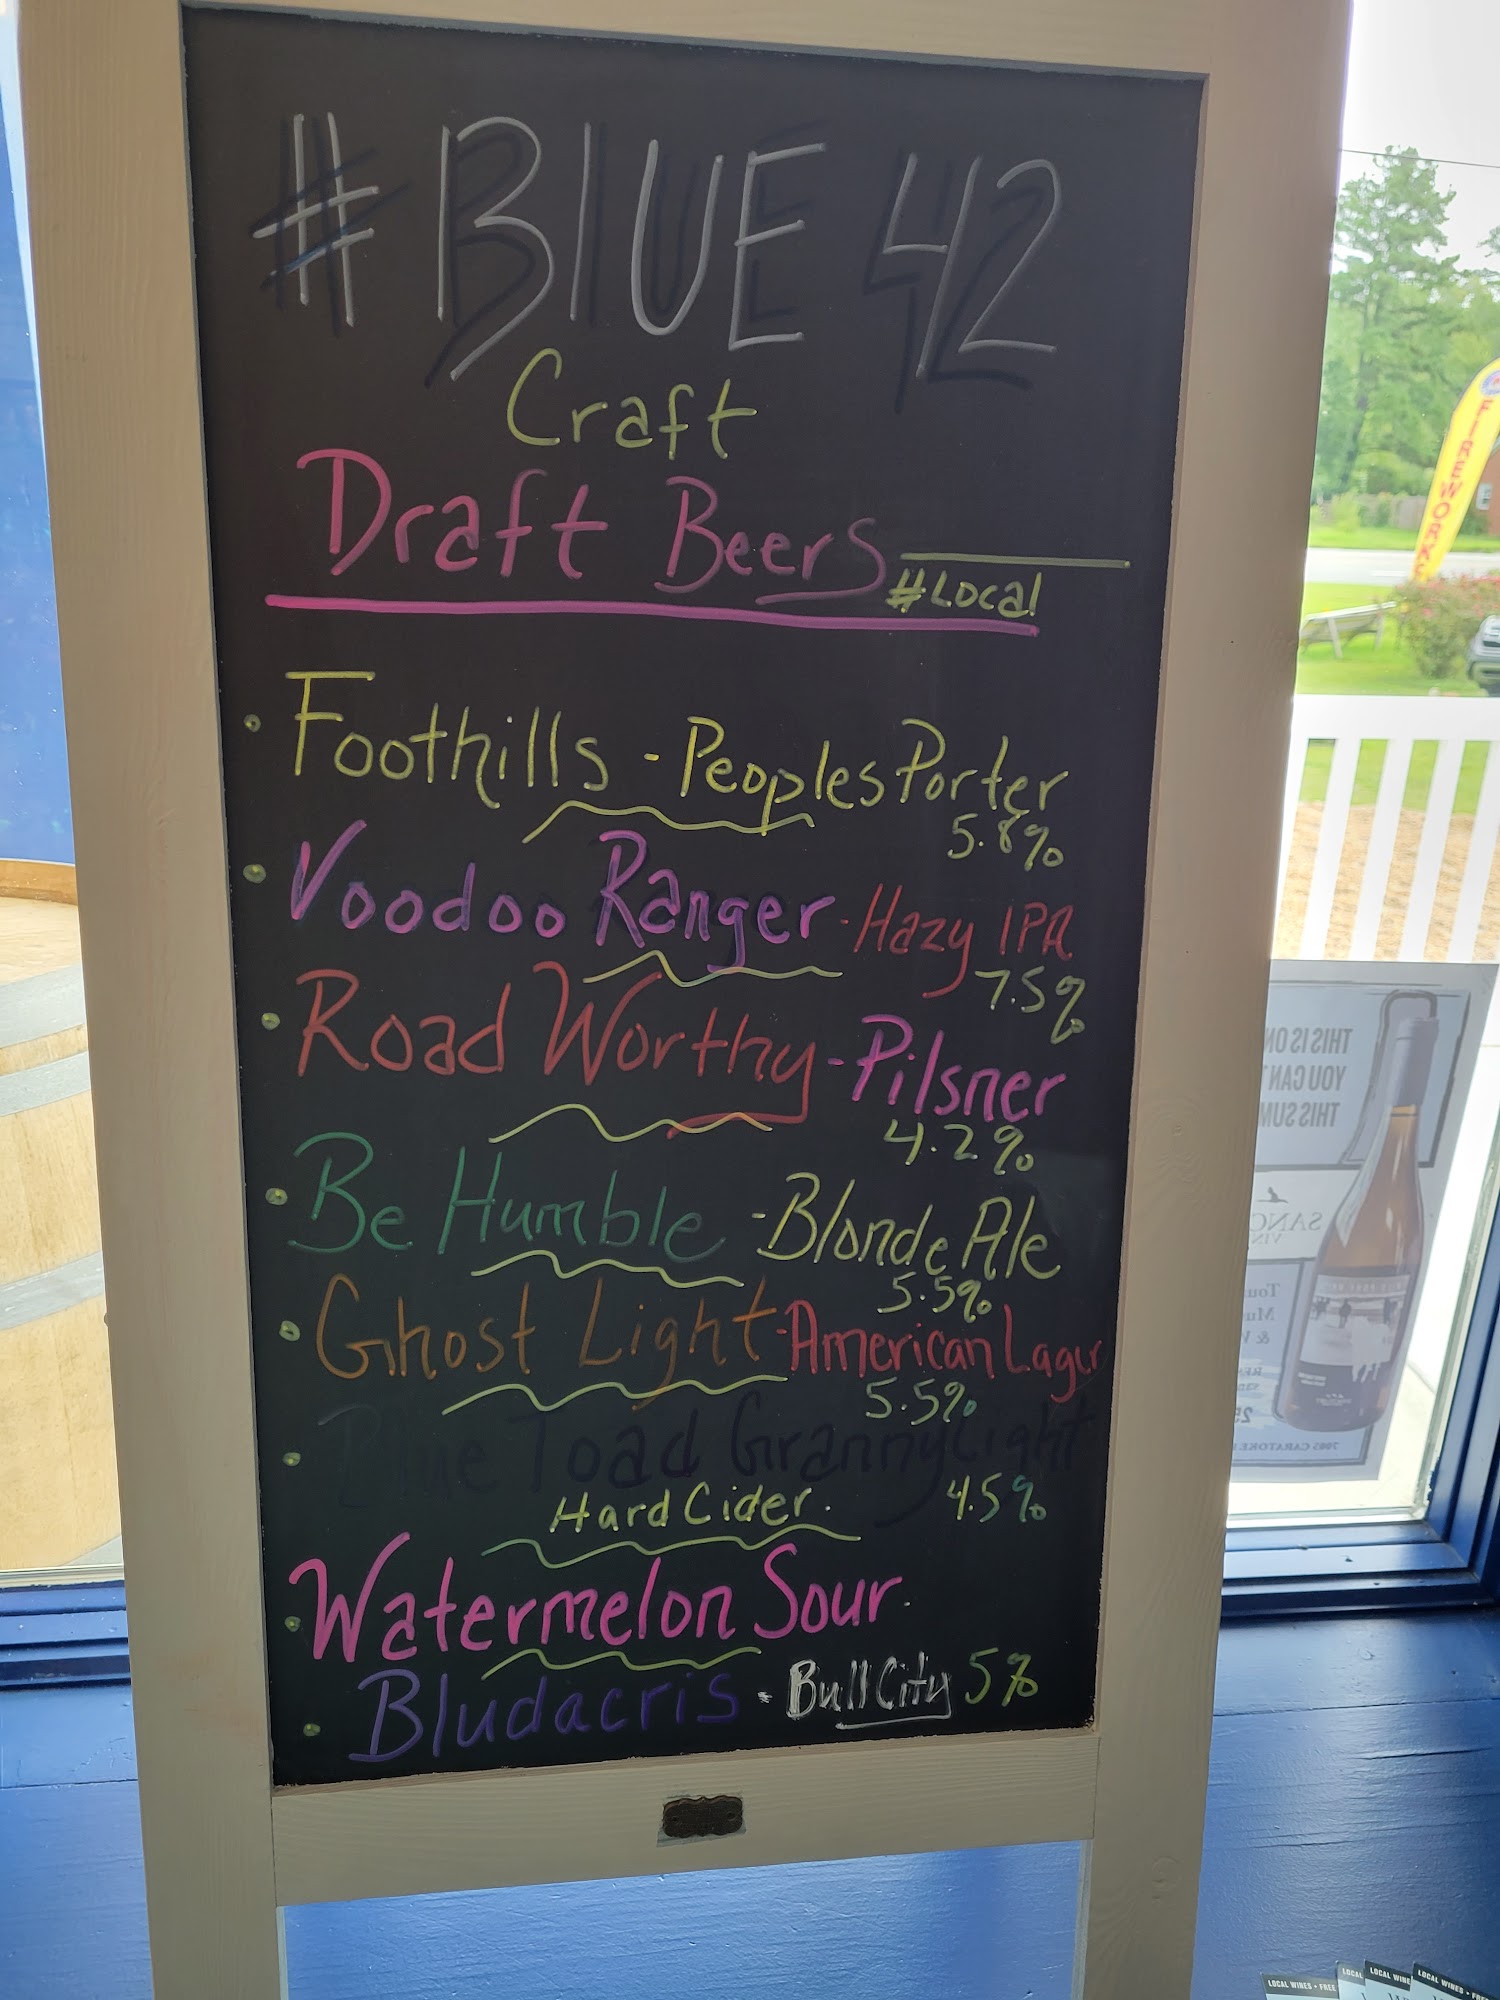 # BLUE 42
Craft
Draft Beers
#Local
Foothills - Peoples Porter
5.8%
Voodoo Ranger - Hazy IPA
7.5%
Road Worthy - Pilsner
4.2%
Be Humble - Blonde Ale
5.5%
Ghost Light - American Lager
5.5%
Blue Toad Granny Light
Hard Cider. 4.5%
Watermelon Sour.
Bludacris - Bull City 5%
FIREWORKS
THIS IS ON
YOU CAN
THIS SUM
LOCAL WINES • FREE
LOCAL WINE
LOCAL WINES • FREE